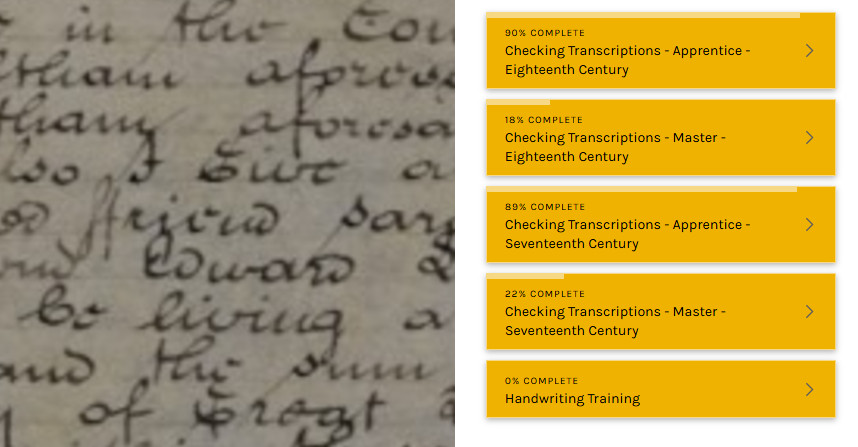 in the Cou
ltham aforesa
tham aforesa
lso I Give a
friend Sar
Edward
be living a
and the sum
of Great
90% COMPLETE
Checking Transcriptions - Apprentice -
Eighteenth Century
18% COMPLETE
Checking Transcriptions - Master -
Eighteenth Century
89% COMPLETE
Checking Transcriptions - Apprentice -
Seventeenth Century
22% COMPLETE
Checking Transcriptions - Master -
Seventeenth Century
0% COMPLETE
Handwriting Training